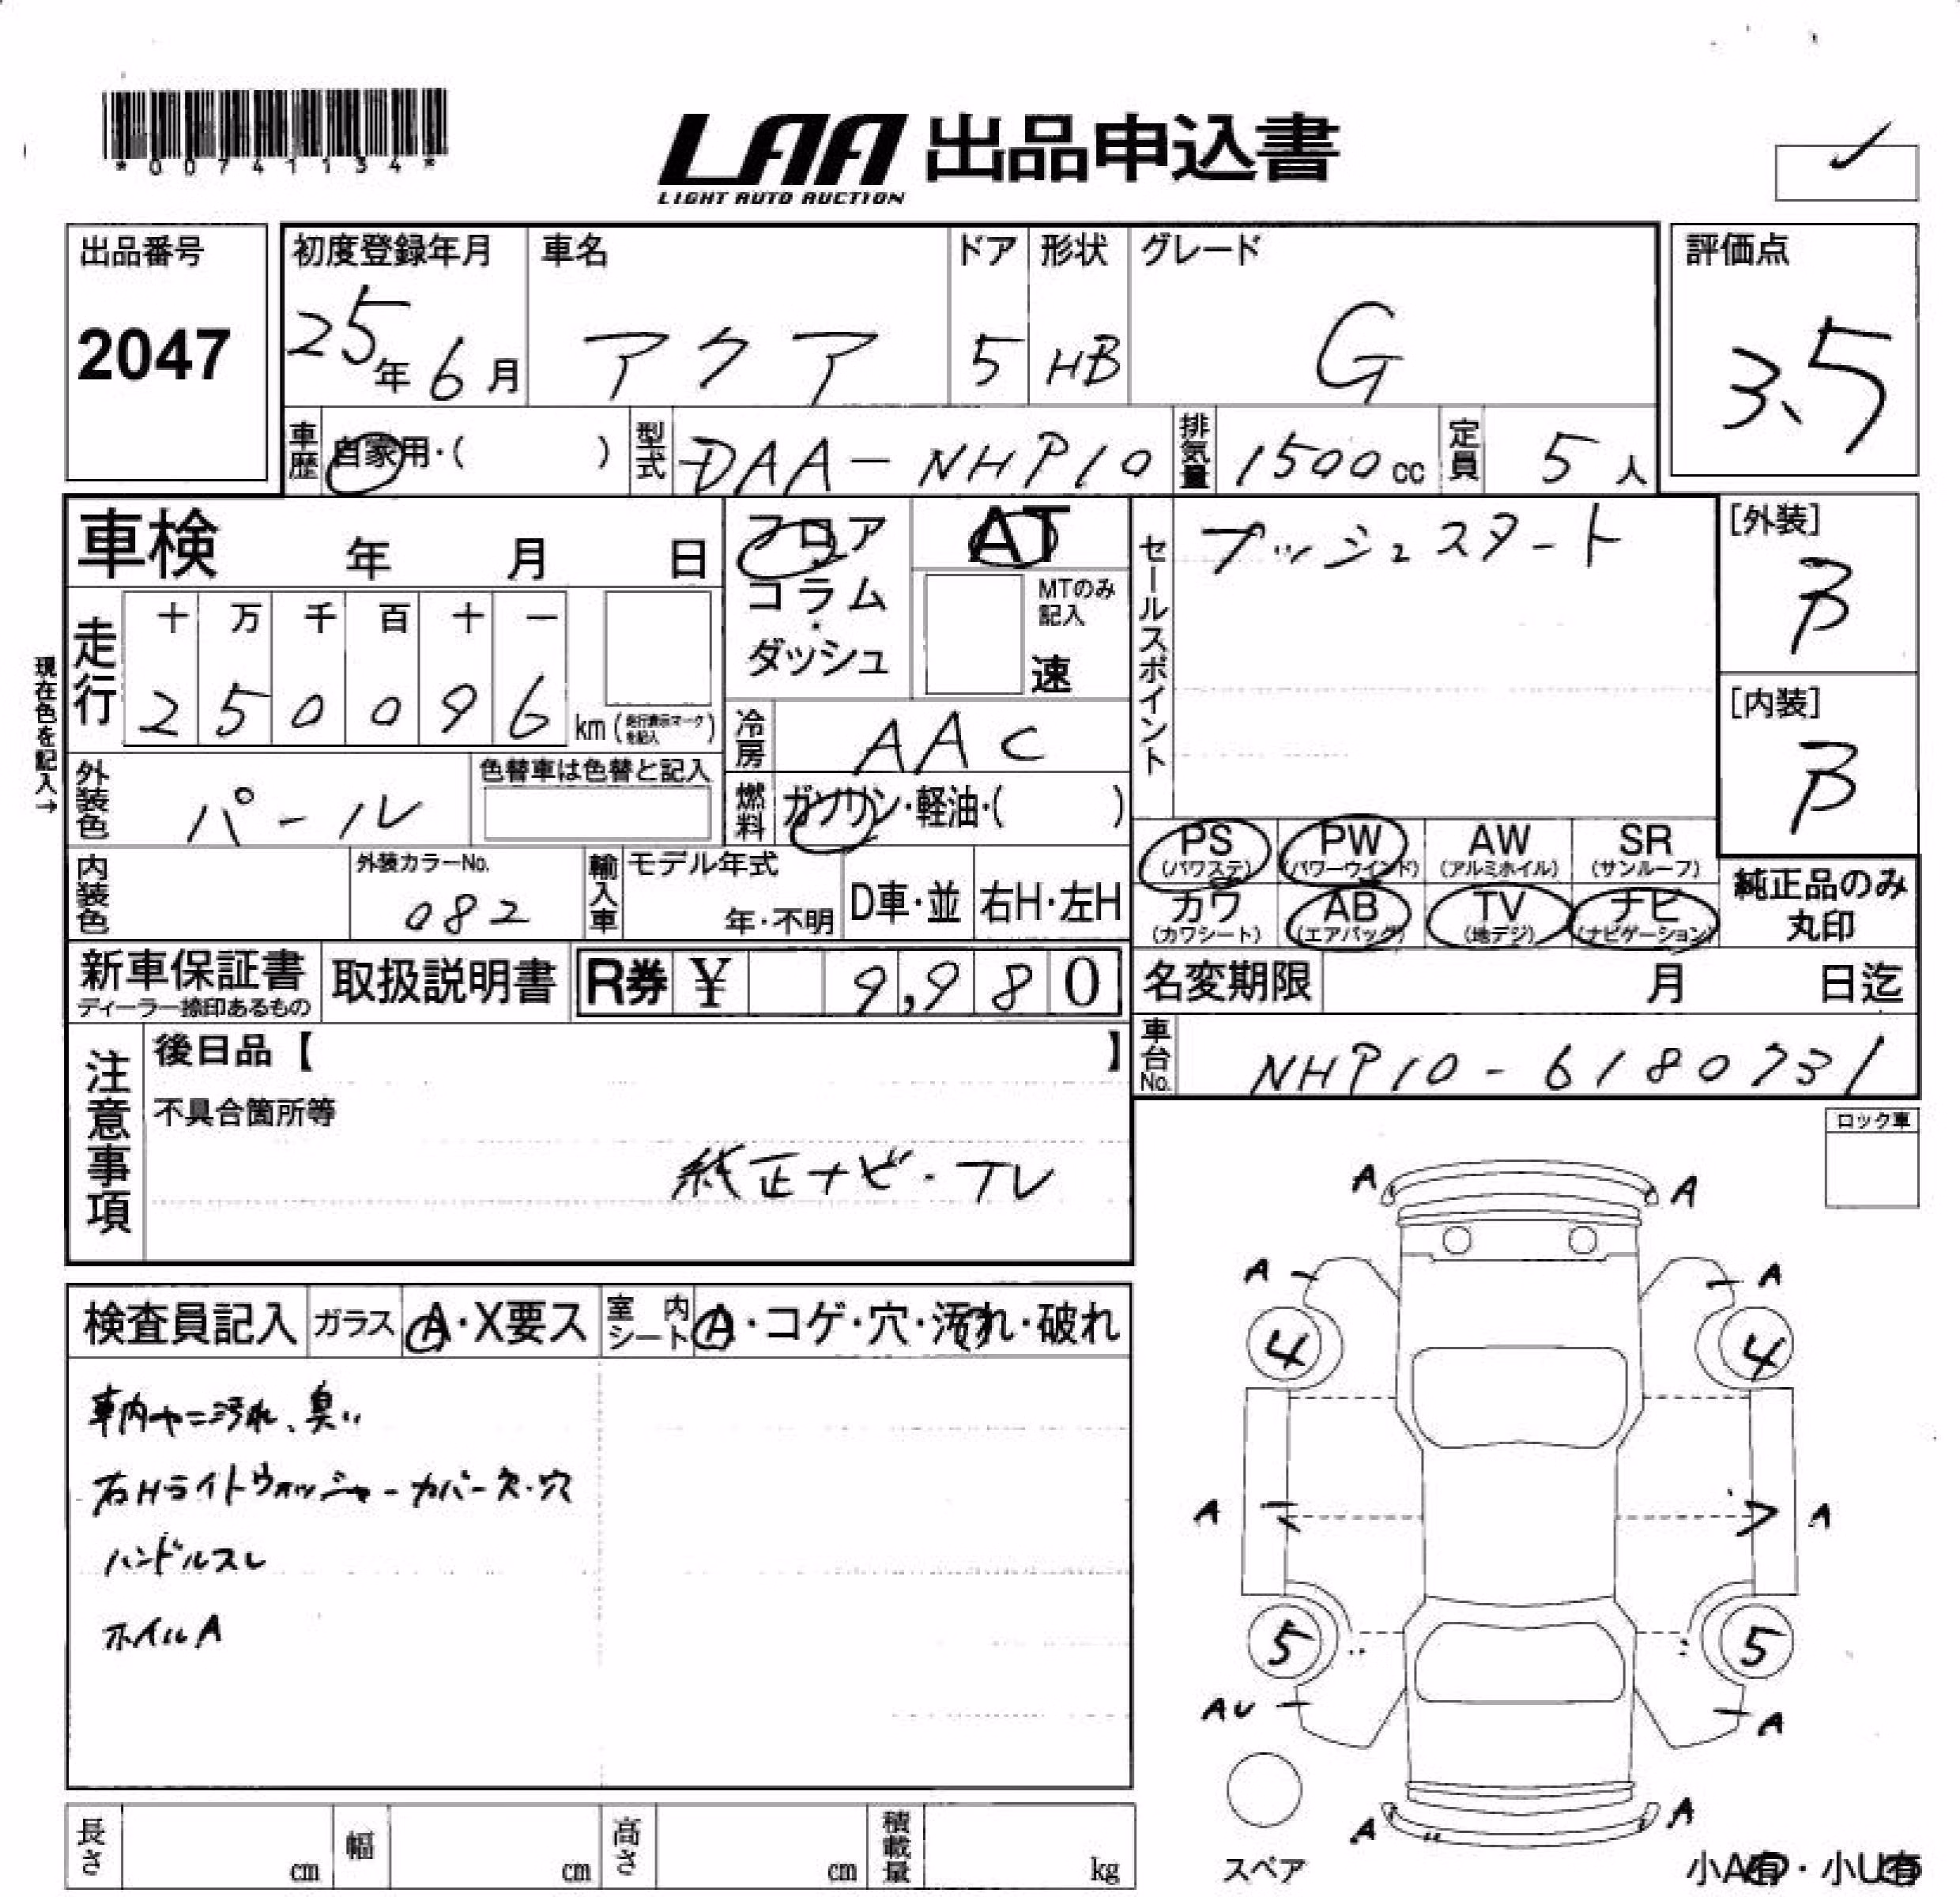 *00741134*
LAA 出品申込書
LIGHT AUTO AUCTION
出品番号
2047
初度登録年月
25年6月
車名
アクア
ドア
5
形状
HB
グレード
G
評価点
3.5
車歴
自家用・( )
型式
DAA-NHP10
排気量
1500cc
定員
5人
車検 年 月 日
フロア
コラム
ダッシュ
AT
MTのみ
記入
速
セールスポイント
プッシュスタート
[外装]
B
[内装]
B
現在色を記入→
走行
十 万 千 百 十 一
2 5 0 0 9 6
km (走行表示マークを記入)
冷房
AAC
外装色
パール
色替車は色替と記入
燃料
ガソリン・軽油・( )
PS
(パワステ)
PW
(パワーウインド)
AW
(アルミホイル)
SR
(サンルーフ)
カワ
(カワシート)
AB
(エアバッグ)
TV
(地デジ)
ナビ
(ナビゲーション)
純正品のみ
丸印
内装色
外装カラーNo.
082
輸入車
モデル年式
年・不明
D車・並
右H・左H
新車保証書
ディーラー捺印あるもの
取扱説明書
R券 ¥ 9,980
名変期限 月 日迄
車台No.
NHP10-6180731
注意事項
後日品【 】
不具合箇所等
純正ナビ・TV
ロック車
検査員記入
ガラス
A・X要ス
室内シート
A・コゲ・穴・汚れ・破れ
車内ヤニ汚れ、臭い
右Hライトウォッシャーカバー欠・穴
ハンドルスレ
ホイルA
A A
A A
4 4
A A
5 5
AU A
A A
スペア
長さ cm
幅 cm
高さ cm
積載量 kg
小A有・小U有